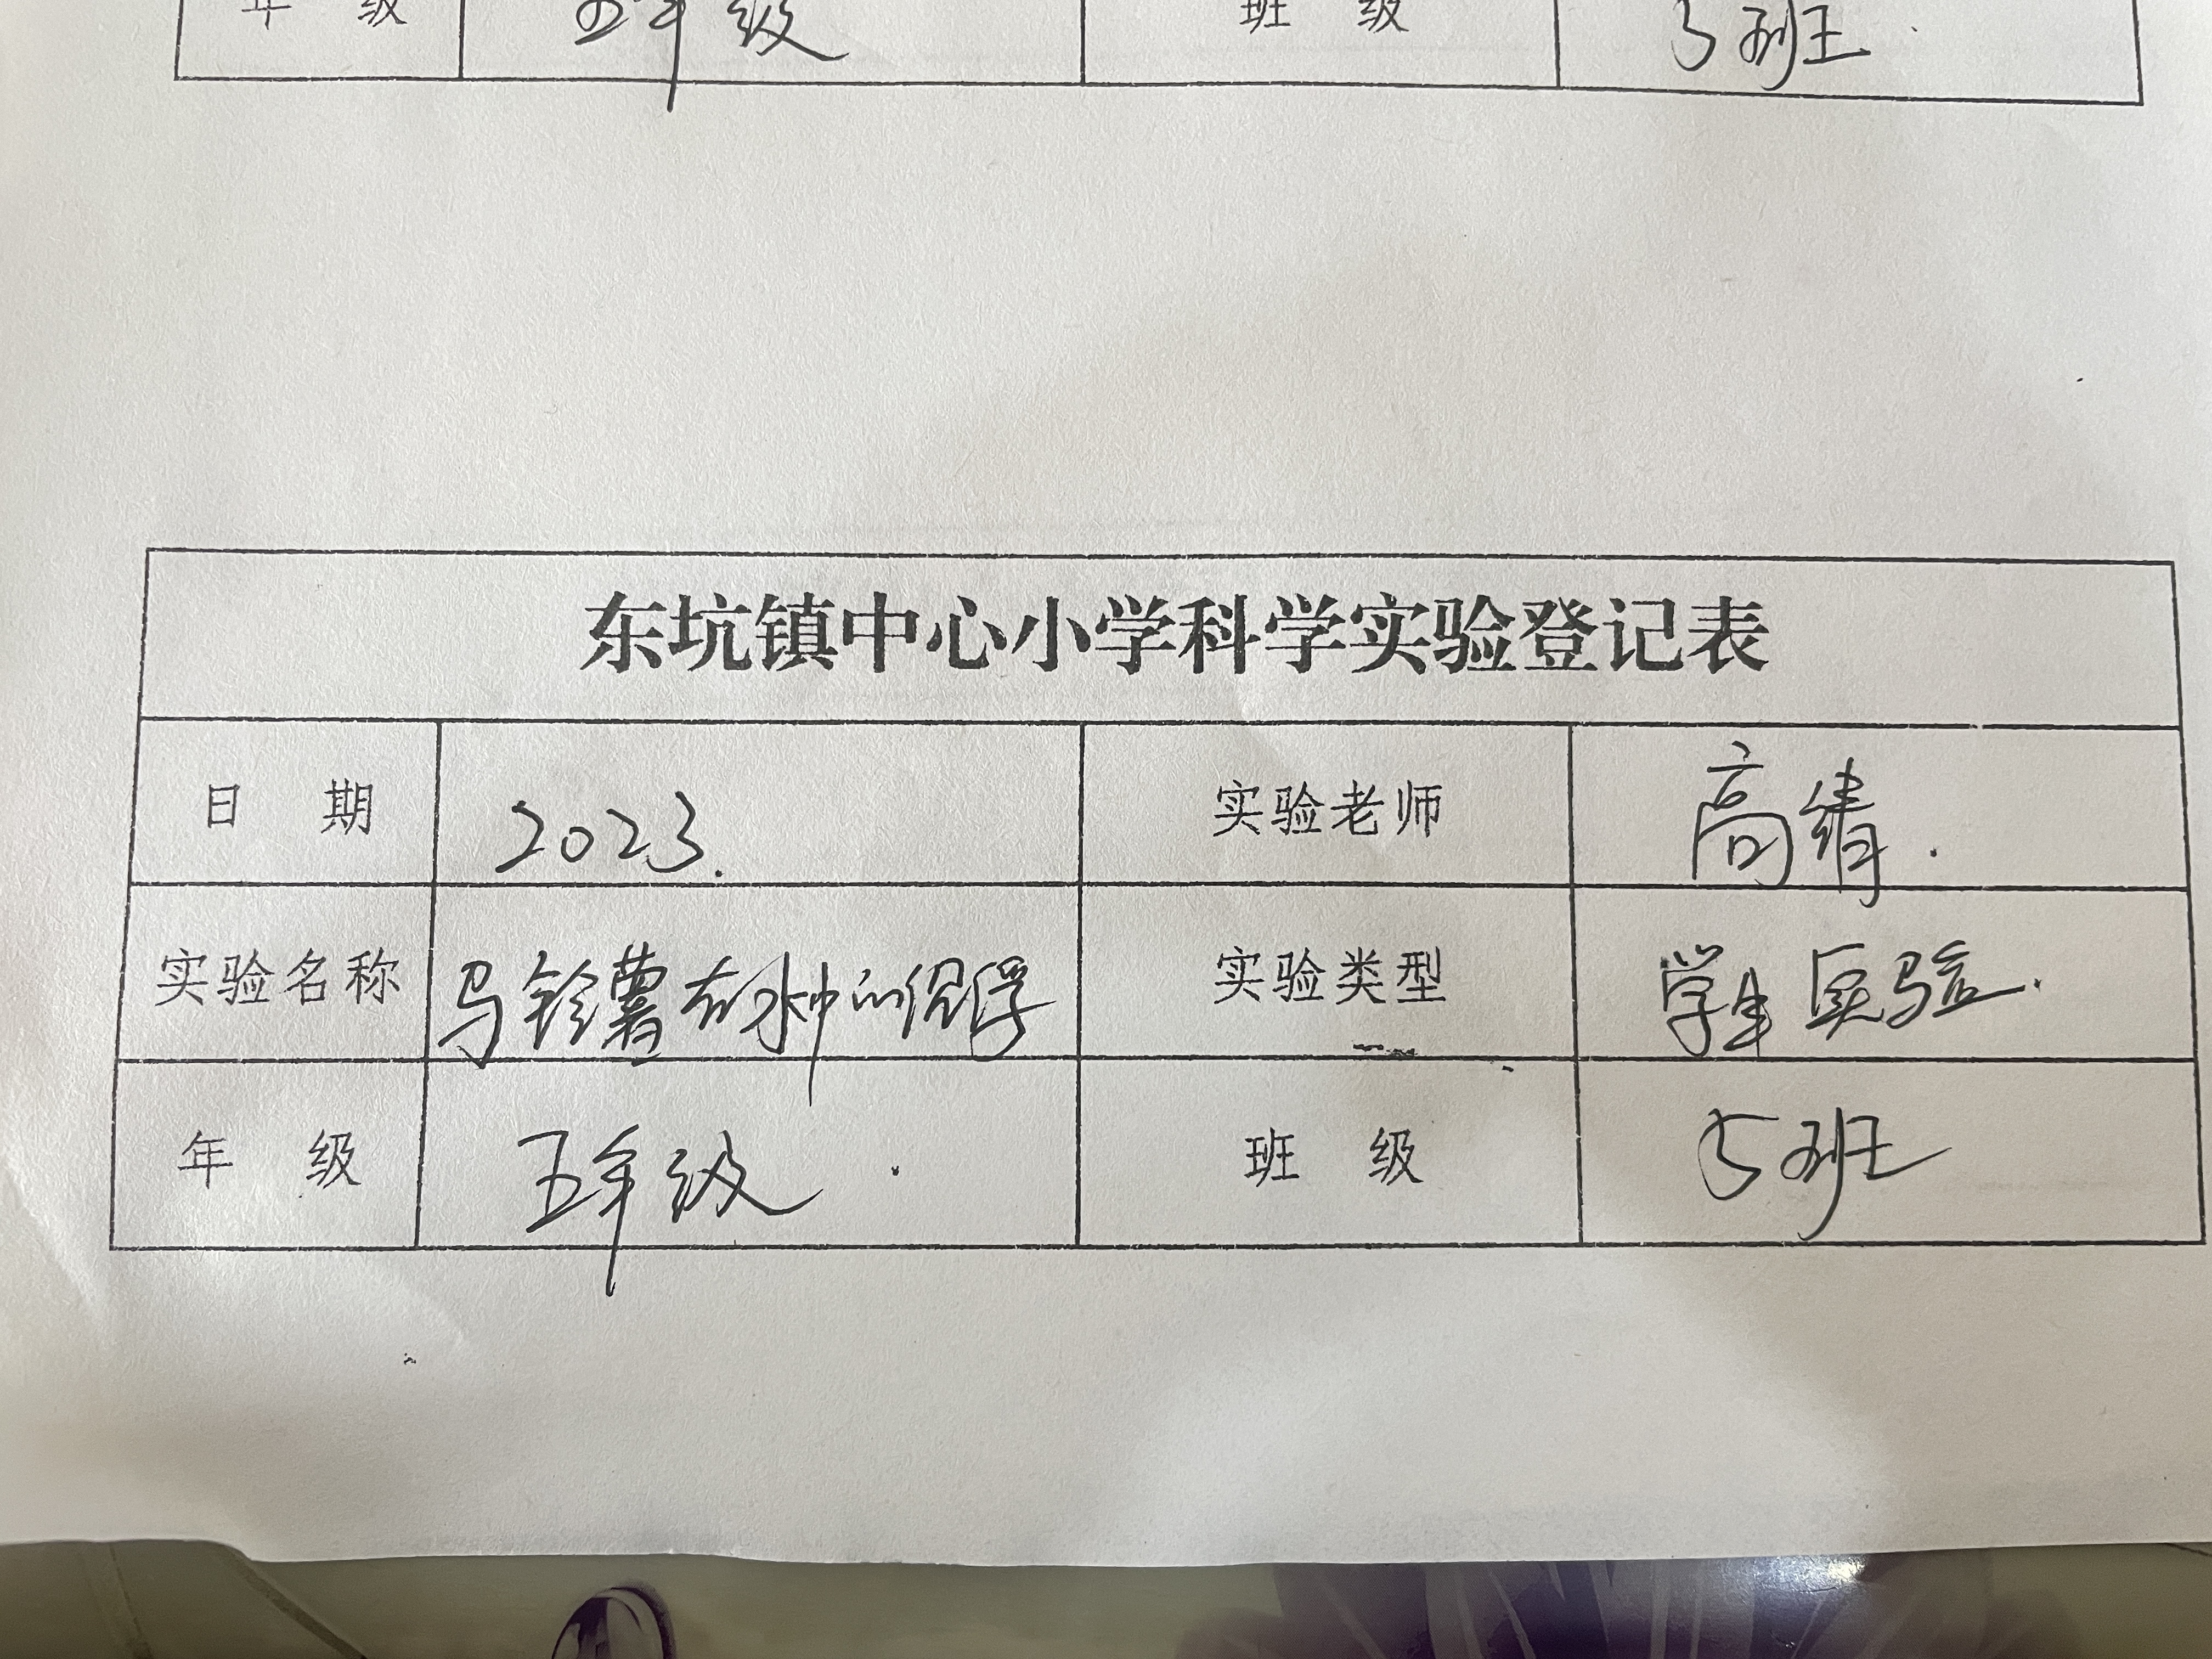 年 级 五年级 班 级 5班.
东坑镇中心小学科学实验登记表
日 期 2023. 实验老师 高绩.
实验名称 马铃薯在水中的沉浮 实验类型 学生实验.
年 级 五年级. 班 级 5班